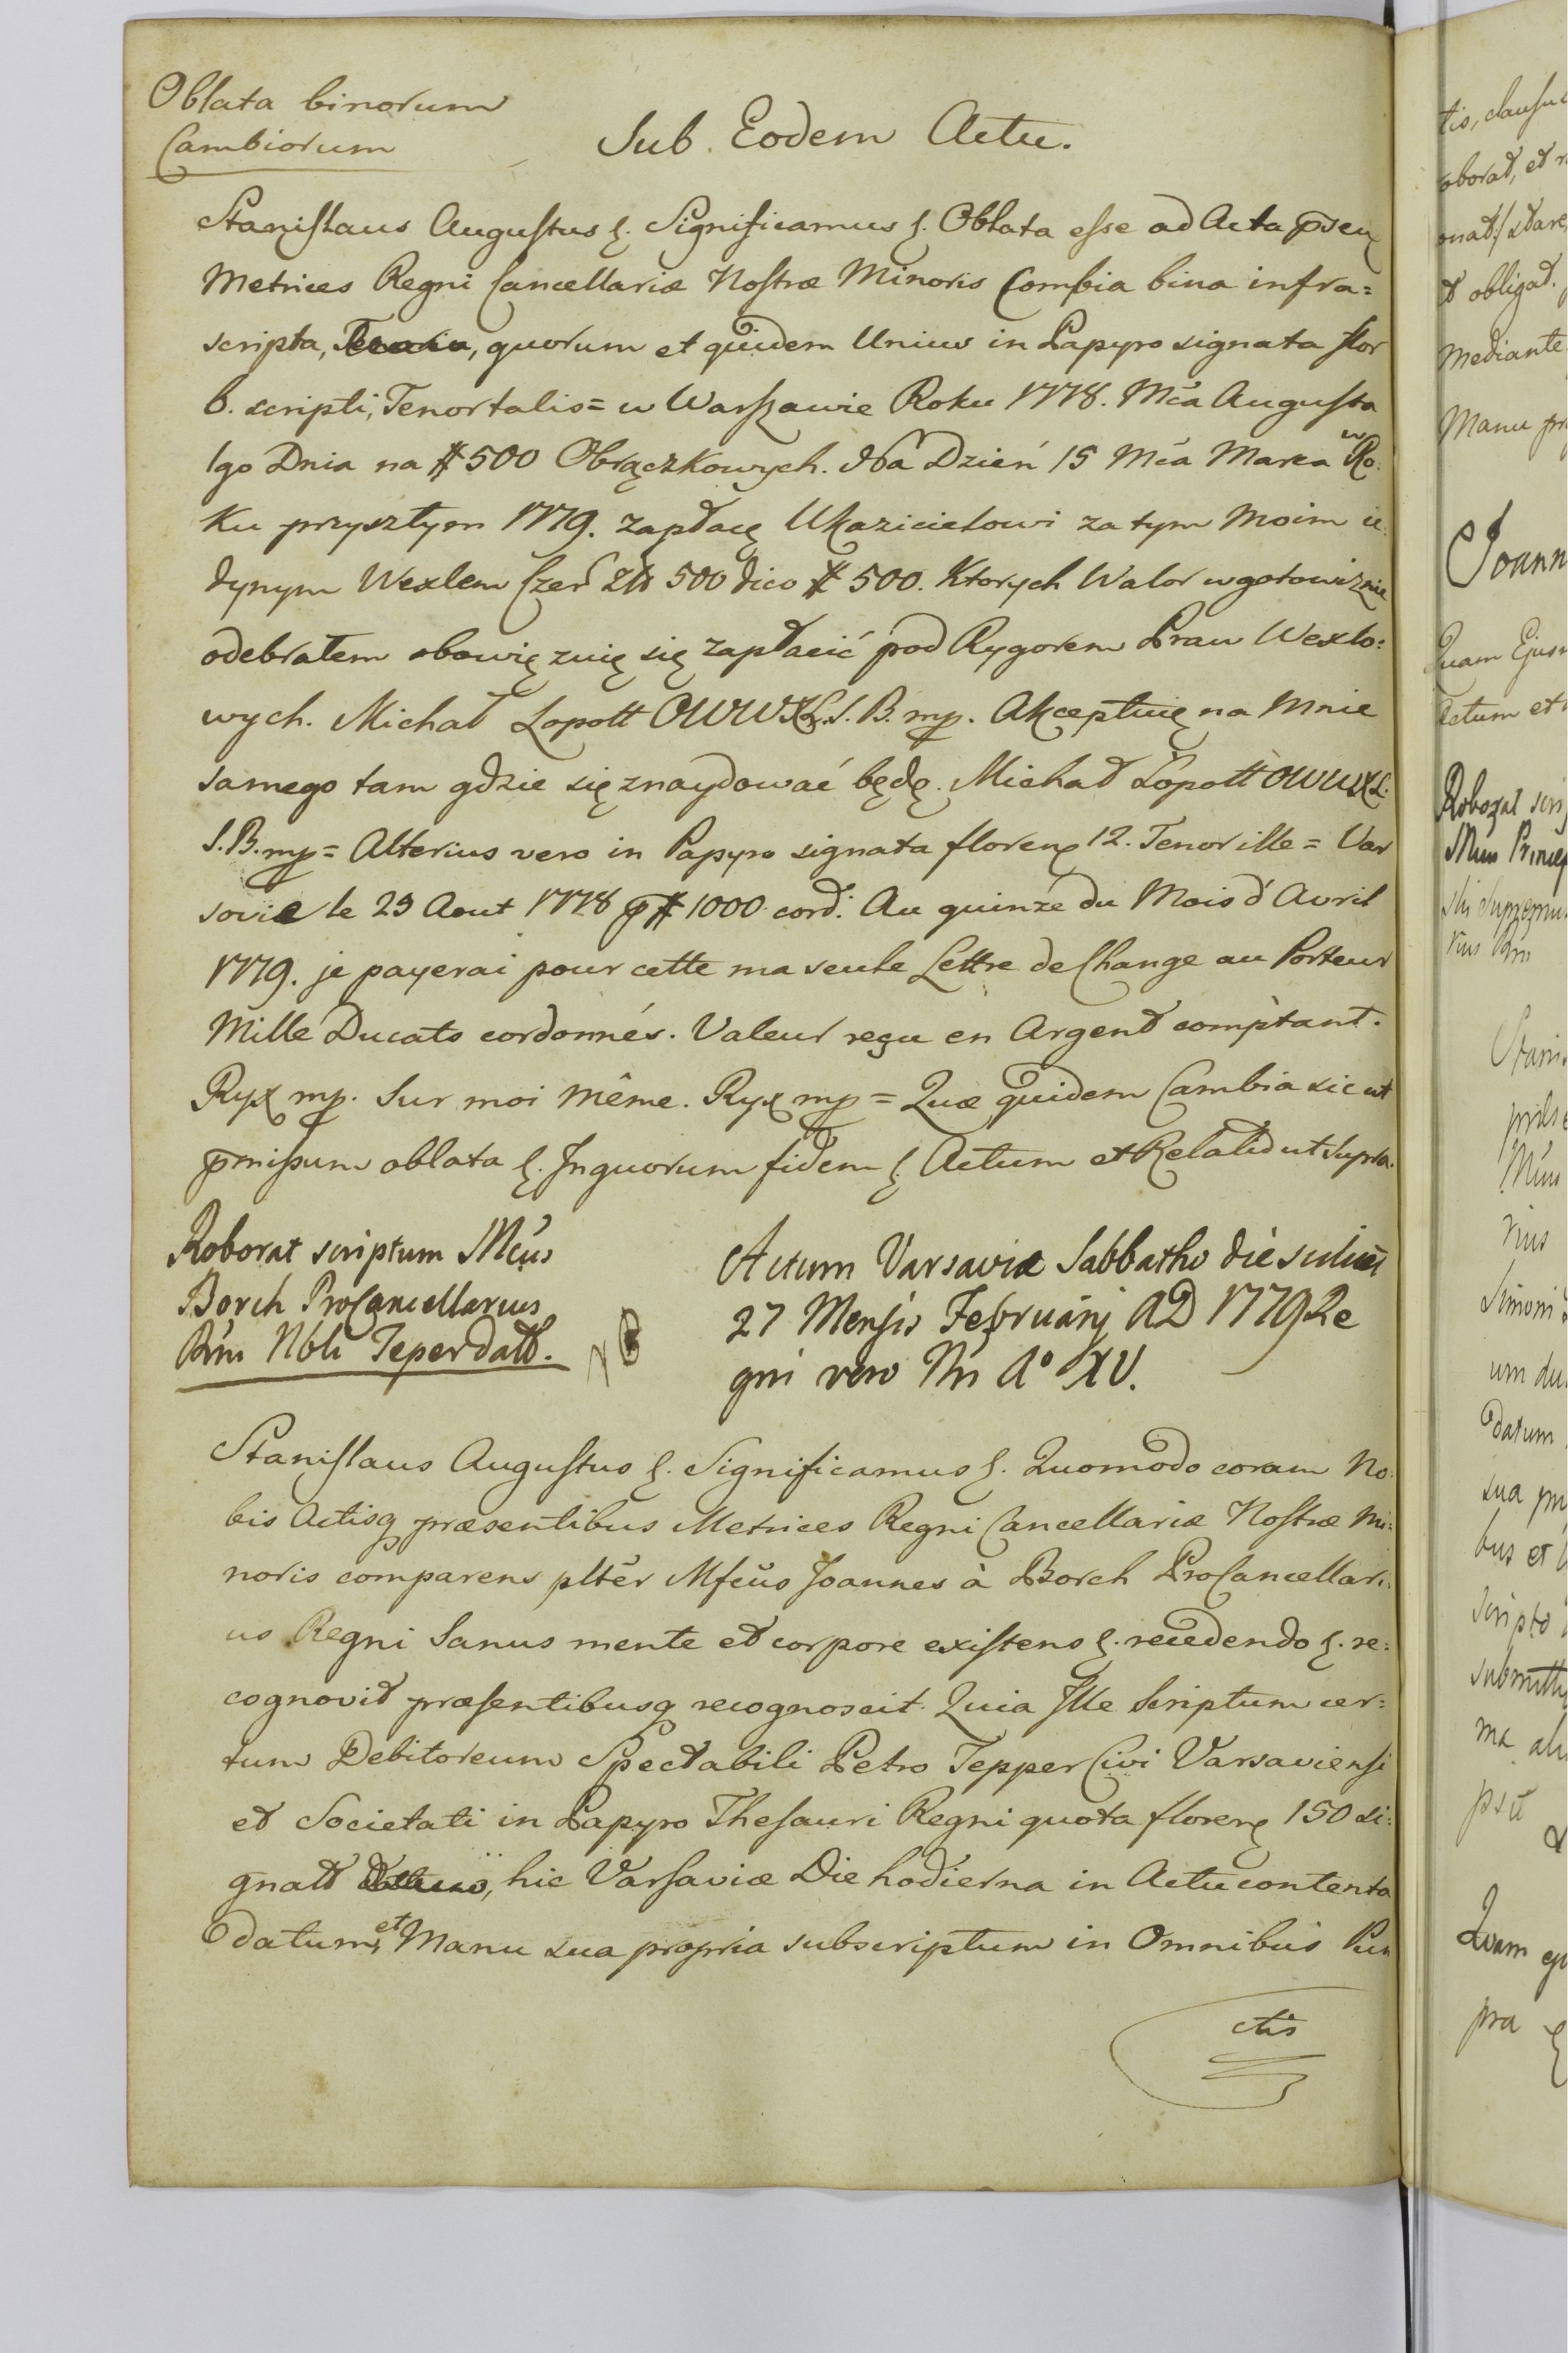 Oblata binorum
Cambiorum
Sub Eodem Actu.
Stanislaus Augustus &. Significamus &. Oblata esse ad Acta p̄sen
Metrices Regni Cancellariæ Nostræ Minoris Cambia bina infra=
scripta, quorum et quidem Unius in Papyro signata flor
6. scripti, Tenor talis = w Warszawie Roku 1778. Mca Augusta
1go Dnia na # 500 Obrączkowych. Na Dzień 15 Mca Marca w Ro-
ku przyszłym 1779. zapłacę Ukazicielowi za tym Moim ie-
dynym Wexlem Czer Zł 500 dico # 500. Ktorych Walor w gotowiznie
odebrałem obowięzuię się zapłacić pod Rygorem Praw Wexlo=
wych. Michał Lopott OWWXL. S. B. mp. Akceptuię na Mnie
samego tam gdzie się znaydować będę. Michał Lopott OWWXL.
S. B. mp = Alterius vero in Papyro signata floren 12. Tenor ille = Var
sovie le 23 Aout 1778 p # 1000 cord: Au quinze du Mois d'Avril
1779. je payerai pour cette ma seule Lettre de Change au Porteur
Mille Ducats cordonnés. Valeur reçu en Argent comptant.
Ryx mp. Sur moi même. Ryx mp = Quæ quidem Cambia sic ut
p̄missum oblata &. In quorum fidem &. Actum et Relatio ut supra.
Roborat scriptum Mcus
Borch ProCancellarius
Rni Nbli Teper datt.
Actum Varsaviæ Sabbatho die scilicet
27 Mensis Februarij AD 1779 Re
gni vero Nri A° XV.
Stanislaus Augustus &. Significamus &. Quomodo coram No-
bis Actisq præsentibus Metrices Regni Cancellariæ Nostræ Mi=
noris comparens plter Mfcus Joannes à Borch ProCancellari-
us Regni Sanus mente et corpore existens &. recedendo &. re=
cognovit præsentibusq recognoscit. Quia Ille Scriptum cer=
tum Debitoreum Spectabili Petro Tepper Civi Varsaviensi
et Societati in Papyro Thesauri Regni quota floren 150 si=
gnatt hic Varsaviæ Die hodierna in Actu contenta
datum, et Manu sua propria subscriptum in Omnibus Pun
ctis